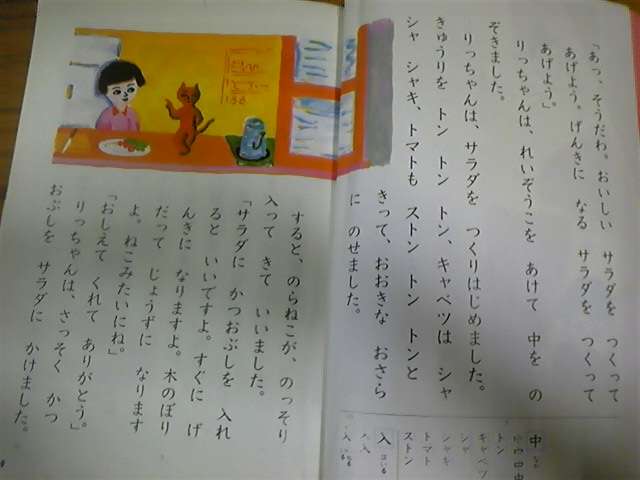 「あっ、そうだわ。おいしい サラダを つくって
あげよう。げんきに なる サラダを つくって
あげよう」
りっちゃんは、れいぞうこを あけて 中を の
ぞきました。
りっちゃんは、サラダを つくりはじめました。
きゅうりを トン トン トン、キャベツは シャ
シャ シャキ、トマトも ストン トン トンと
きって、おおきな おさら
に のせました。
中
トン
キャベツ
シャ
シャキ
トマト
ストン
入
すると、のらねこが、のっそり
入って きて いいました。
「サラダに かつおぶしを 入れ
ると いいですよ。すぐに げ
んきに なりますよ。木のぼり
だって じょうずに なります
よ。ねこみたいにね」
「おしえて くれて ありがとう。」
りっちゃんは、さっそく かつ
おぶしを サラダに かけました。